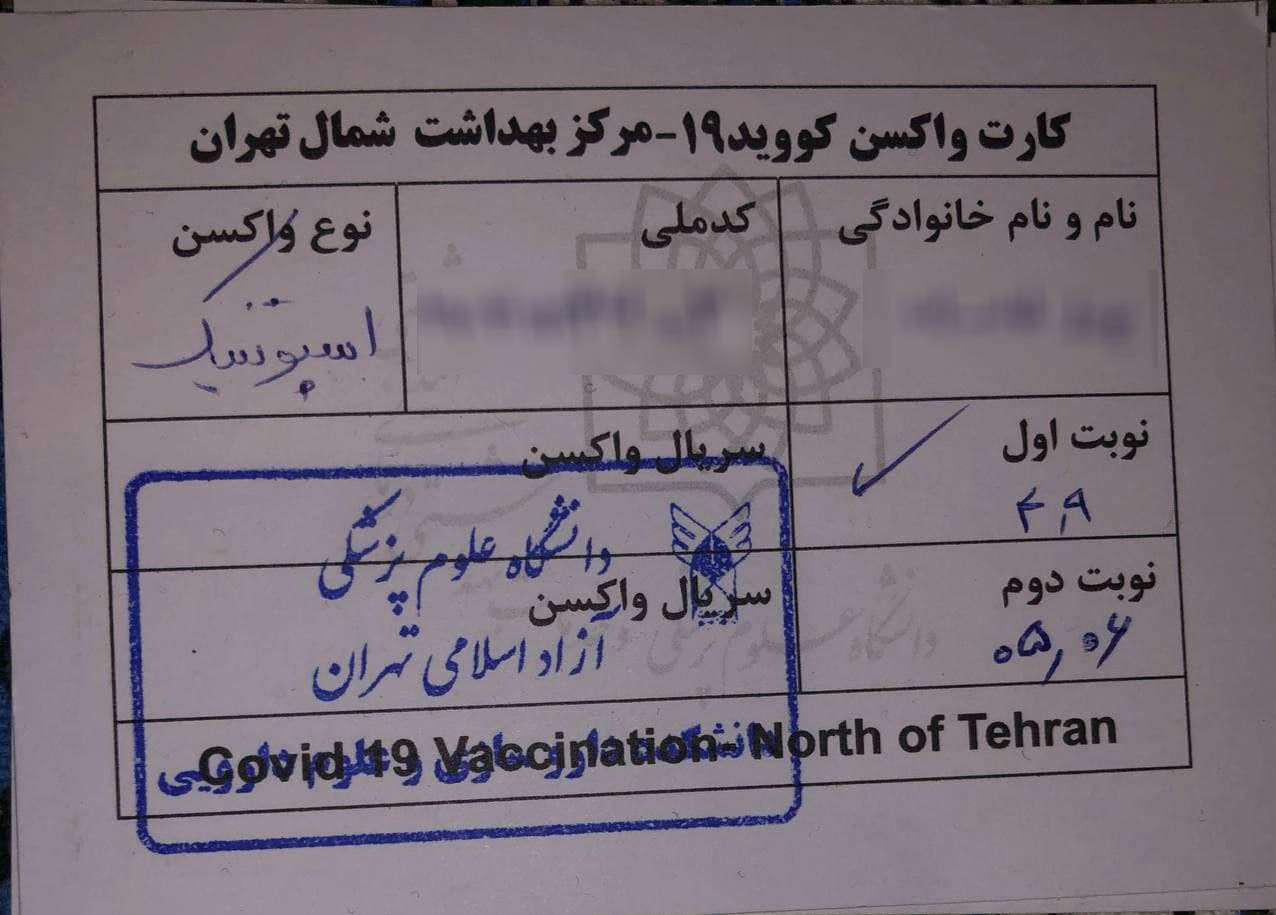 کارت واکسن کووید۱۹-مرکز بهداشت شمال تهران
نام و نام خانوادگی
کدملی
نوع واکسن
اسپوتنیک
نوبت اول
سریال واکسن
دانشگاه علوم پزشکی
نوبت دوم
۰۵,۰۶
سریال واکسن
آزاد اسلامی تهران
Covid 19 Vaccination- North of Tehran